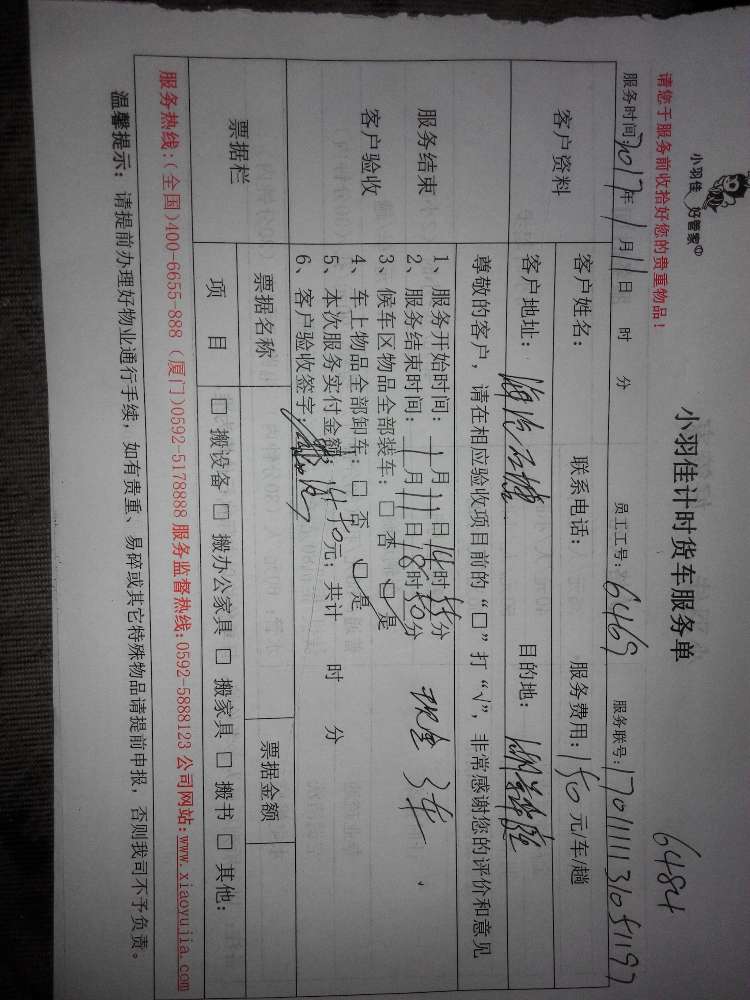 小羽佳 好管家
小羽佳计时货车服务单
6484
请您于服务前收拾好您的贵重物品！
服务时间 2017年 1月 11日 时 分 员工工号：6469 服务联号：
客户资料
客户姓名： 联系电话： 服务费用：150元/车/趟
客户地址： 目的地：
服务结束
客户验收
尊敬的客户，请在相应验收项目前的“□”打“√”，非常感谢您的评价和意见
1、服务开始时间：1月11日14时 分
2、服务结束时间：1月11日18时50分
3、候车区物品全部装车：□ 否 □ 是
4、车上物品全部卸车：□ 否 □ 是
5、本次服务实付金额： 元；共计 时 分
6、客户验收签字：
现金 3车
票据栏
票据名称 票据金额
项 目 □ 搬设备 □ 搬办公家具 □ 搬家具 □ 搬书 □ 其他：
服务热线：(全国)400-6655-888 (厦门)0592-5178888 服务监督热线：0592-5888123 公司网站：www.xiaoyujia.com
温馨提示：请提前办理好物业通行手续，如有贵重、易碎或其它特殊物品请提前申报，否则我司不予负责。